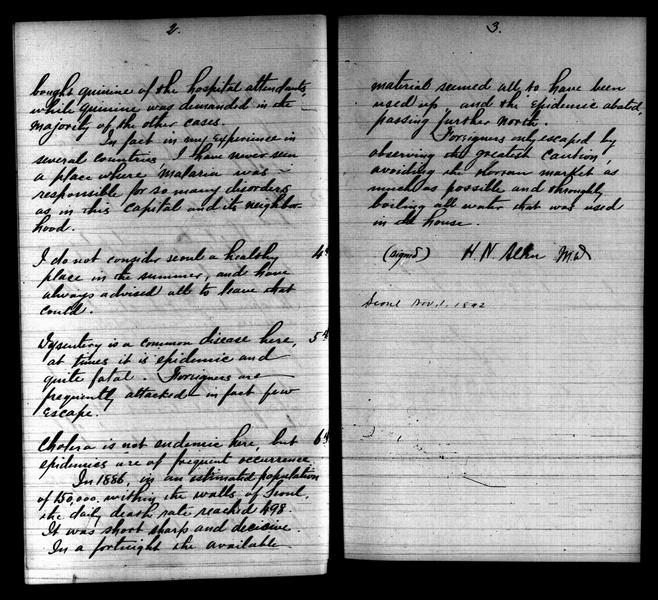 2.
bought quinine of the hospital attendants,
while quinine was demanded in the
majority of the other cases.
In fact in my experience in
several countries I have never seen
a place where malaria was
responsible for so many disorders
as in this Capital and its neighbor-
hood.
I do not consider Seoul a healthy 4th
place in the summer, and have
always advised all to leave that
could.
Dysentery is a common disease here, 5th
at times it is epidemic and
quite fatal. Foreigners are
frequently attacked - in fact few
escape.
Cholera is not endemic here, but 6th
epidemics are of frequent occurrence
In 1886, in an estimated population
of 150,000, within the walls of Seoul,
the daily death rate reached 498
It was short sharp and decisive.
In a fortnight the available
3.
material seemed all to have been
used up, and the epidemic abated,
passing further north.
Foreigners only escaped by
observing the greatest caution,
avoiding the Korean market as
much as possible and throughly
boiling all water that was used
in the house.
(signed) H. N. Allen M.D.
Seoul Nov. 1, 1892